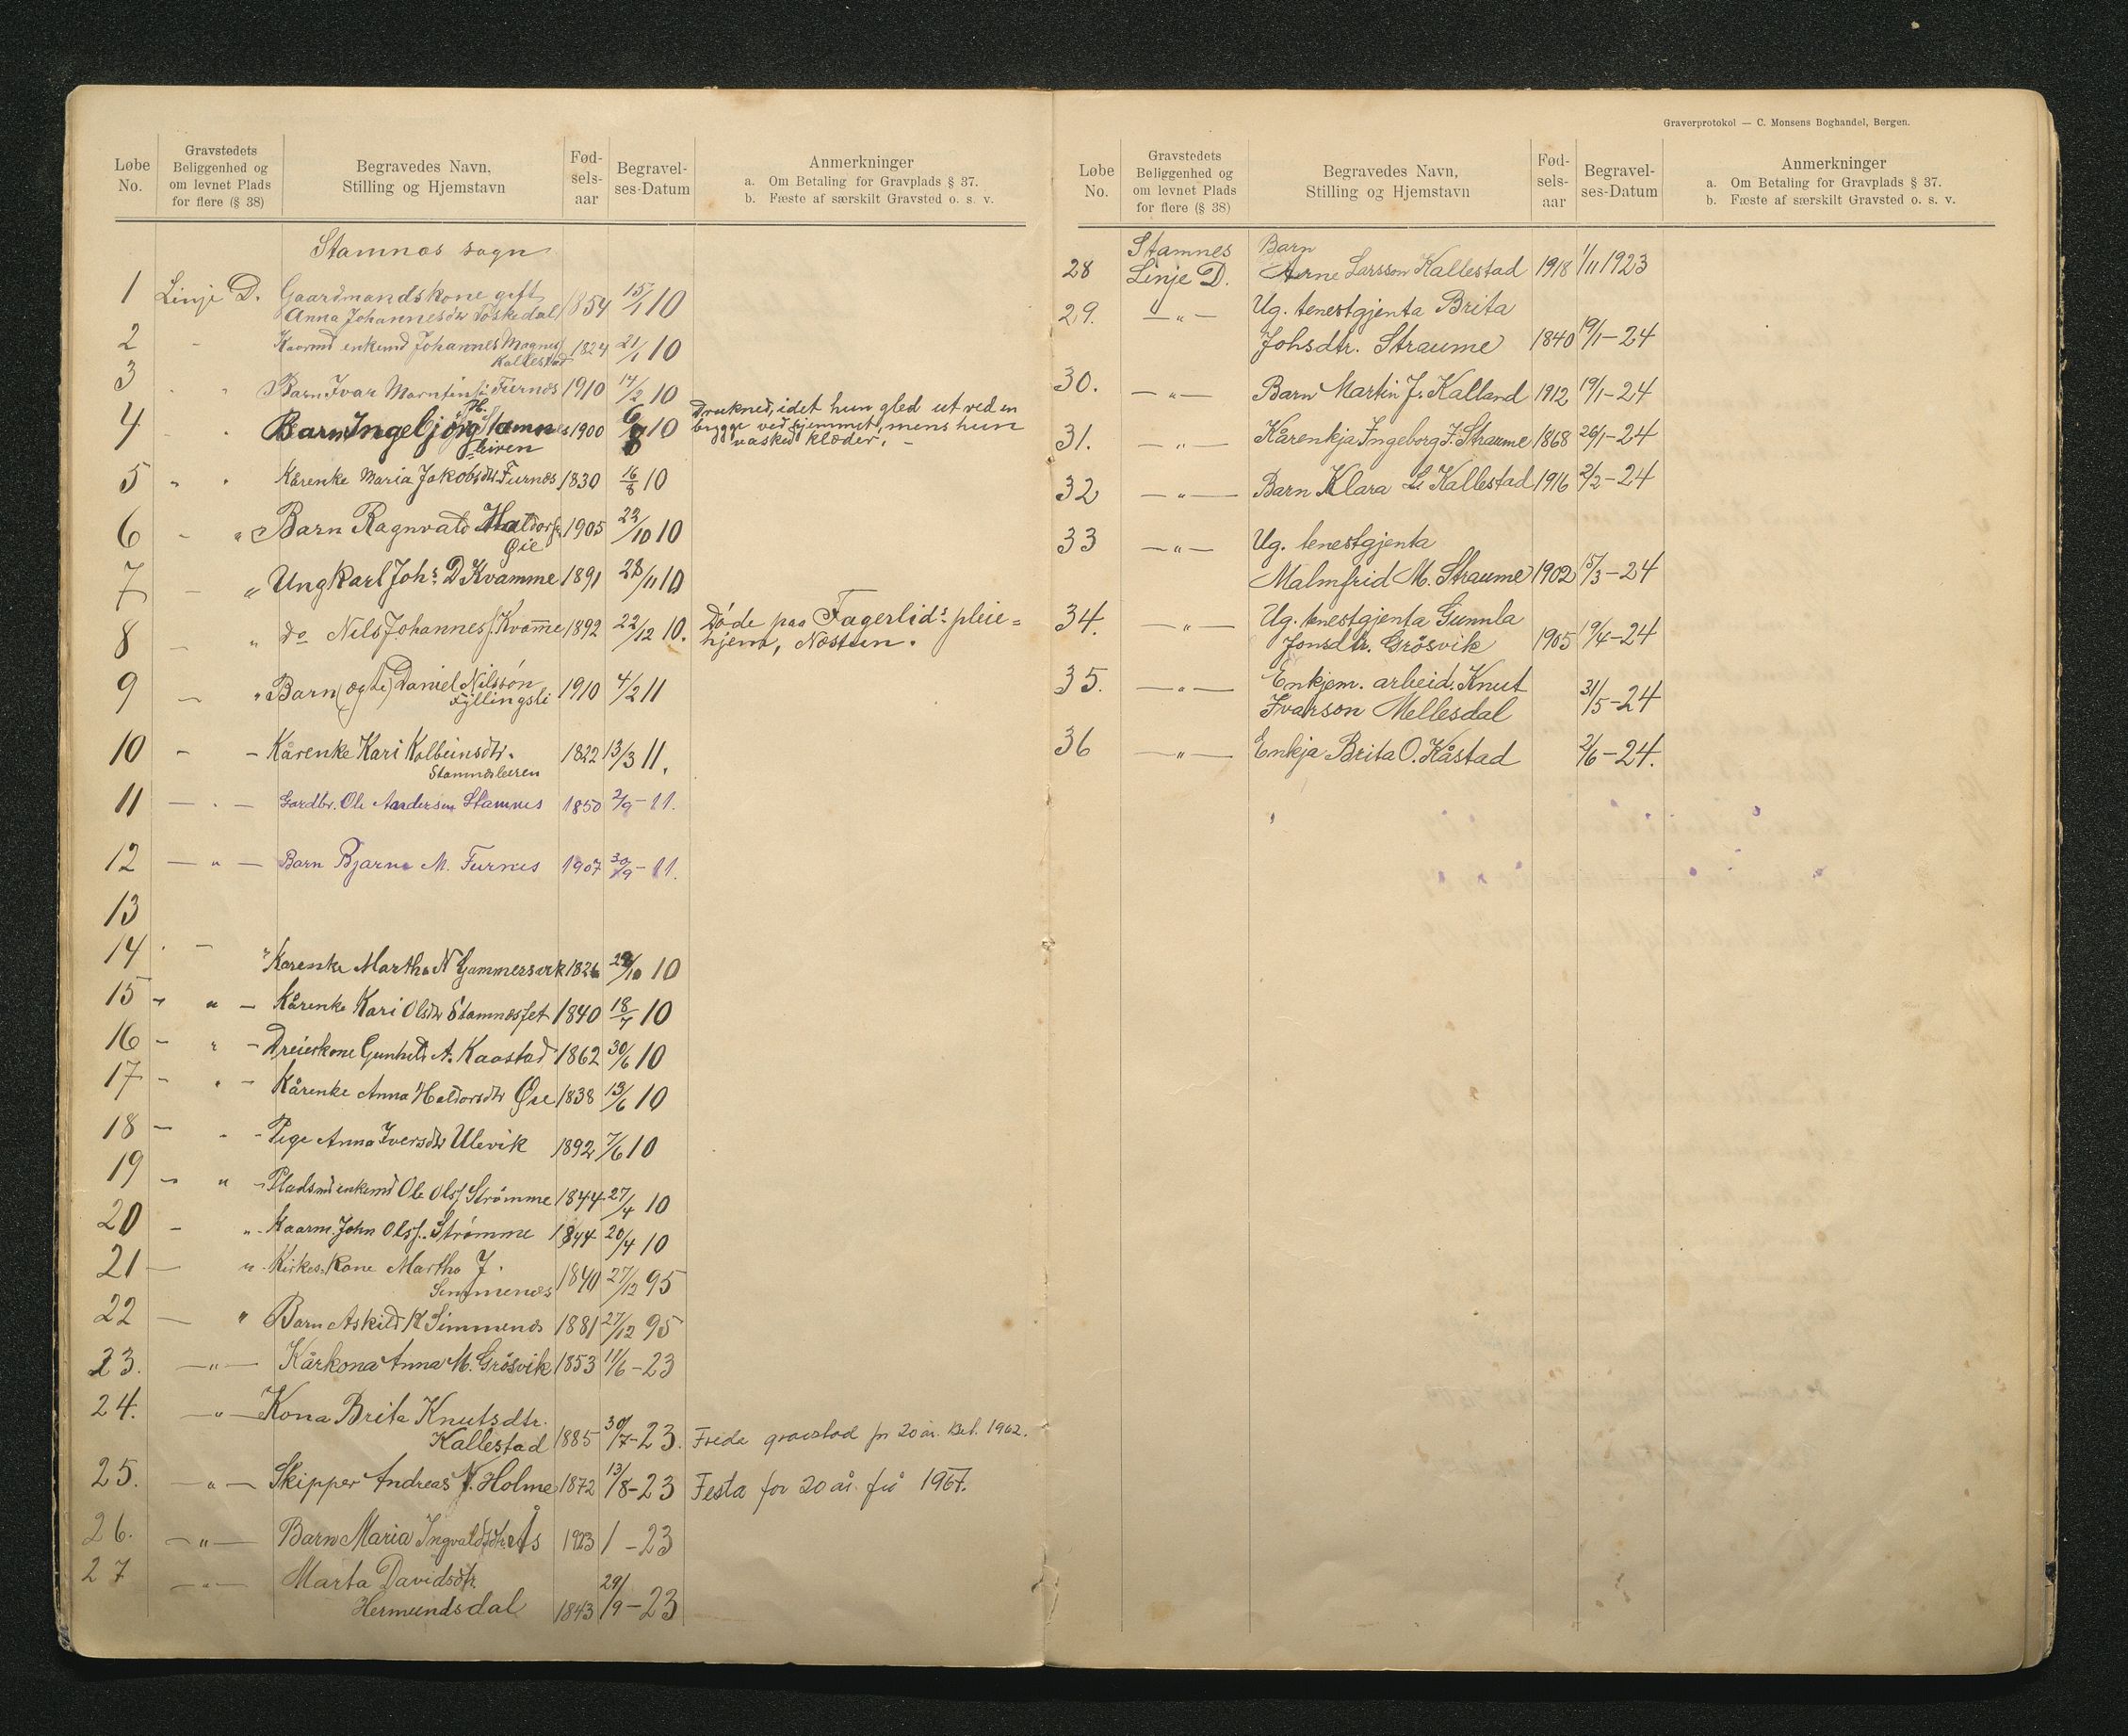 Løbe No. Gravstedets Beliggenhed og om levnet Plads for flere (§ 38) Begravedes Navn, Stilling og Hjemstavn Fød-sels-aar Begravel-ses-Datum Anmerkninger
a. Om Betaling for Gravplads § 37.
b. Fæste af særskilt Gravsted o. s. v.
Stamnes sogn
1 Linje D. Gaardmandskone gift
Anna Johannesdtr Toskedal 1854 15/1 10
2 enkemd Johannes Magnes 1824 21/1 10
Kallestad
3 Barn Ivar Furnes 1910 14/2 10
4 Barn Ingebjörg H. Stamnes 1900 10 Drukned, idet hun gled ut ved en
brygge ved hjemmet, mens hun
vasked klæder. -
5 " Kårenke Maria Jakobsdtr. Furnes 1830 16/8 10
6 - " Barn Ragnvald Haldors. 1905 22/10 10
Øie
7 - " Ungkarl Johs. D Kvamme 1891 28/11 10
8 - " do Nils Johannes. Kvamme 1892 22/12 10. Døde paa Fagerlids pleie=
hjem, Nesttun.
9 - " Barn (ogte) Daniel Nilssön 1910 4/2 11
Fyllingsli
10 - - Kårenke Kari Kolbeinsdtr. 1822 13/3 11.
11 - " - Gardbr. Ole Andersen Stamnes 1850 2/9-11.
12 - " - Barn Bjarne M. Furnes 1907 30/9-11.
13
14 - " Karenke Martha N 10
15 - " - Kårenke Kari Olsdtr Stamnesset 1840 18/7 10
16 - " - Dreierkone Gunhild A. Kaastad 1862 30/6 10
17 - " - Kårenke Anna Haldorsdtr Øie 1838 13/6 10
18 - " - Pige Anna Iversdtr Ulevik 1892 7/6 10
19 - " - Pladsmd enkemd Ole Ols. Strömme 1844 27/4 10
20 - " - Kaarm. John Ols. Strømme 1844 20/4 10
21 - " - Kirkes. Kone Martha J. 1840 27/12 95
Simmenes
22 - " Barn Askild K Simmenes 1881 27/12 95
23. -"- Kårkona Anna M. Grösvik 1853 11/6-23
24. -"- Kona Brita Knutsdtr.
Kallestad 1885 30/7-23. gravstad for 20 år. Bet. 1962.
25. -"- Skipper Andreas N. Holme 1872 13/8-23 Festa for 20 år. frå 1967.
26. -"- Barn Maria Ingvaldsdtr. 1923 1 -23
27 -"- Marta Davidsdtr.
Hermundsdal 1843 29/9-23
Graverprotokol — C. Monsens Boghandel, Bergen.
Løbe No. Gravstedets Beliggenhed og om levnet Plads for flere (§ 38) Begravedes Navn, Stilling og Hjemstavn Fød-sels-aar Begravel-ses-Datum Anmerkninger
a. Om Betaling for Gravplads § 37.
b. Fæste af særskilt Gravsted o. s. v.
Stamnes Barn
28 Linje D. Arne Larsson Kallestad 1918 1/11 1923
29. -"- Ug. tenestgjenta Brita
Johsdtr. Straume 1840 19/1-24
30. -"- Barn Martin J. Kalland 1912 19/1-24
31. -"- Kårenkja Ingeborg J. Straume 1868 26/1-24
32 -"- Barn Klara L. Kallestad 1916 2/2-24
33 -"- Ug. tenestgjenta
Malmfrid M. Straume 1902 15/3-24
34. -"- Ug. tenestgjenta Gunnla
Jonsdtr. Grösvik 1905 9/4-24
35. -"- Enkjem. arbeid. Knut
Ivarson Mellesdal 31/5-24
36 -"- Enkja Brita O. Kåstad 2/6-24.